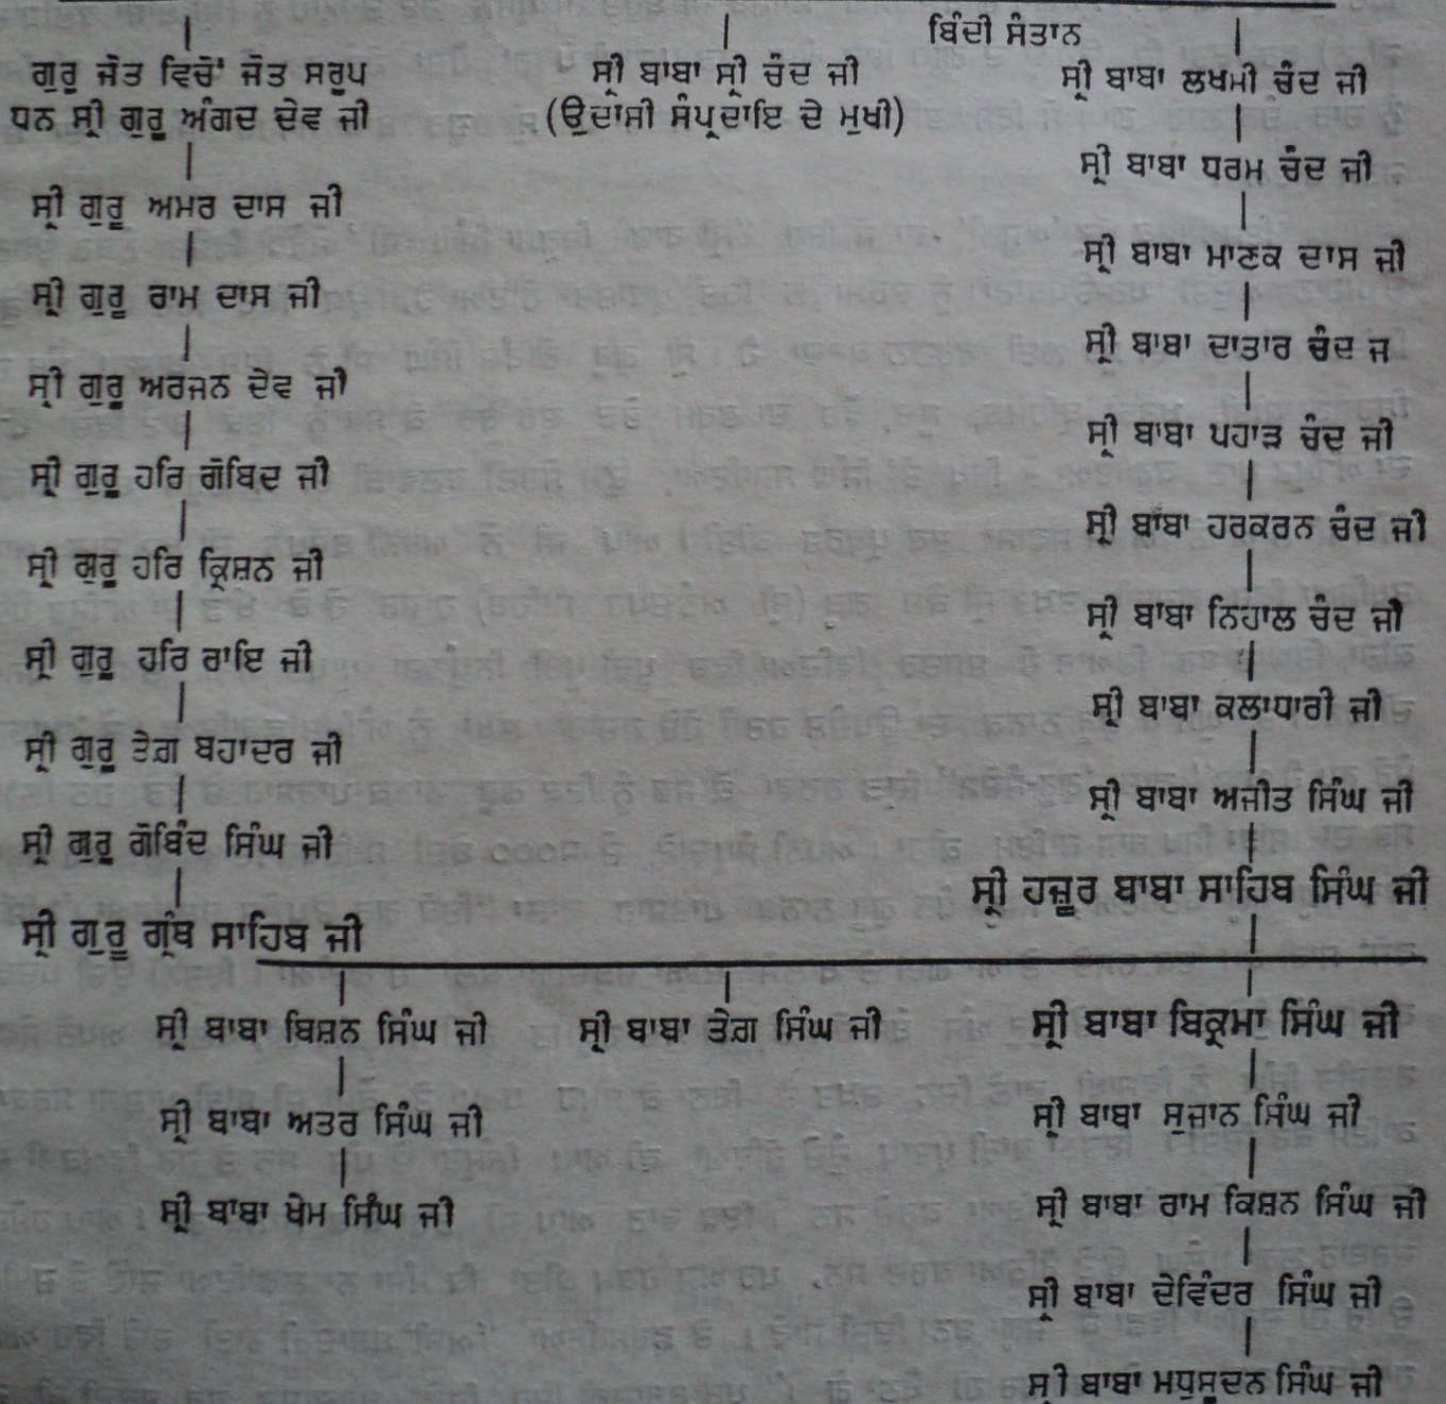 ਬਿੰਦੀ ਸੰਤਾਨ
ਗੁਰੂ ਜੋਤ ਵਿਚੋਂ ਜੋਤ ਸਰੂਪ
ਧਨ ਸ੍ਰੀ ਗੁਰੂ ਅੰਗਦ ਦੇਵ ਜੀ
ਸ੍ਰੀ ਗੁਰੂ ਅਮਰ ਦਾਸ ਜੀ
ਸ੍ਰੀ ਗੁਰੂ ਰਾਮ ਦਾਸ ਜੀ
ਸ੍ਰੀ ਗੁਰੂ ਅਰਜਨ ਦੇਵ ਜੀ
ਸ੍ਰੀ ਗੁਰੂ ਹਰਿ ਗੋਬਿਦ ਜੀ
ਸ੍ਰੀ ਗੁਰੂ ਹਰਿ ਕ੍ਰਿਸ਼ਨ ਜੀ
ਸ੍ਰੀ ਗੁਰੂ ਹਰਿ ਰਾਇ ਜੀ
ਸ੍ਰੀ ਗੁਰੂ ਤੇਗ਼ ਬਹਾਦਰ ਜੀ
ਸ੍ਰੀ ਗੁਰੂ ਗੋਬਿੰਦ ਸਿੰਘ ਜੀ
ਸ੍ਰੀ ਗੁਰੂ ਗ੍ਰੰਥ ਸਾਹਿਬ ਜੀ
ਸ੍ਰੀ ਬਾਬਾ ਸ੍ਰੀ ਚੰਦ ਜੀ
(ਉਦਾਸੀ ਸੰਪ੍ਰਦਾਇ ਦੇ ਮੁਖੀ)
ਸ੍ਰੀ ਬਾਬਾ ਲਖਮੀ ਚੰਦ ਜੀ
ਸ੍ਰੀ ਬਾਬਾ ਧਰਮ ਚੰਦ ਜੀ
ਸ੍ਰੀ ਬਾਬਾ ਮਾਣਕ ਦਾਸ ਜੀ
ਸ੍ਰੀ ਬਾਬਾ ਦਾਤਾਰ ਚੰਦ ਜ
ਸ੍ਰੀ ਬਾਬਾ ਪਹਾੜ ਚੰਦ ਜੀ
ਸ੍ਰੀ ਬਾਬਾ ਹਰਕਰਨ ਚੰਦ ਜੀ
ਸ੍ਰੀ ਬਾਬਾ ਨਿਹਾਲ ਚੰਦ ਜੀ
ਸ੍ਰੀ ਬਾਬਾ ਕਲਾਧਾਰੀ ਜੀ
ਸ੍ਰੀ ਬਾਬਾ ਅਜੀਤ ਸਿੰਘ ਜੀ
ਸ੍ਰੀ ਹਜ਼ੂਰ ਬਾਬਾ ਸਾਹਿਬ ਸਿੰਘ ਜੀ
ਸ੍ਰੀ ਬਾਬਾ ਬਿਸ਼ਨ ਸਿੰਘ ਜੀ
ਸ੍ਰੀ ਬਾਬਾ ਅਤਰ ਸਿੰਘ ਜੀ
ਸ੍ਰੀ ਬਾਬਾ ਖੇਮ ਸਿੰਘ ਜੀ
ਸ੍ਰੀ ਬਾਬਾ ਤੇਗ਼ ਸਿੰਘ ਜੀ
ਸ੍ਰੀ ਬਾਬਾ ਬਿਕ੍ਰਮਾ ਸਿੰਘ ਜੀ
ਸ੍ਰੀ ਬਾਬਾ ਸੁਜਾਨ ਸਿੰਘ ਜੀ
ਸ੍ਰੀ ਬਾਬਾ ਰਾਮ ਕਿਸ਼ਨ ਸਿੰਘ ਜੀ
ਸ੍ਰੀ ਬਾਬਾ ਦੇਵਿੰਦਰ ਸਿੰਘ ਜੀ
ਸ੍ਰੀ ਬਾਬਾ ਮਧੁਸੂਦਨ ਸਿੰਘ ਜੀ